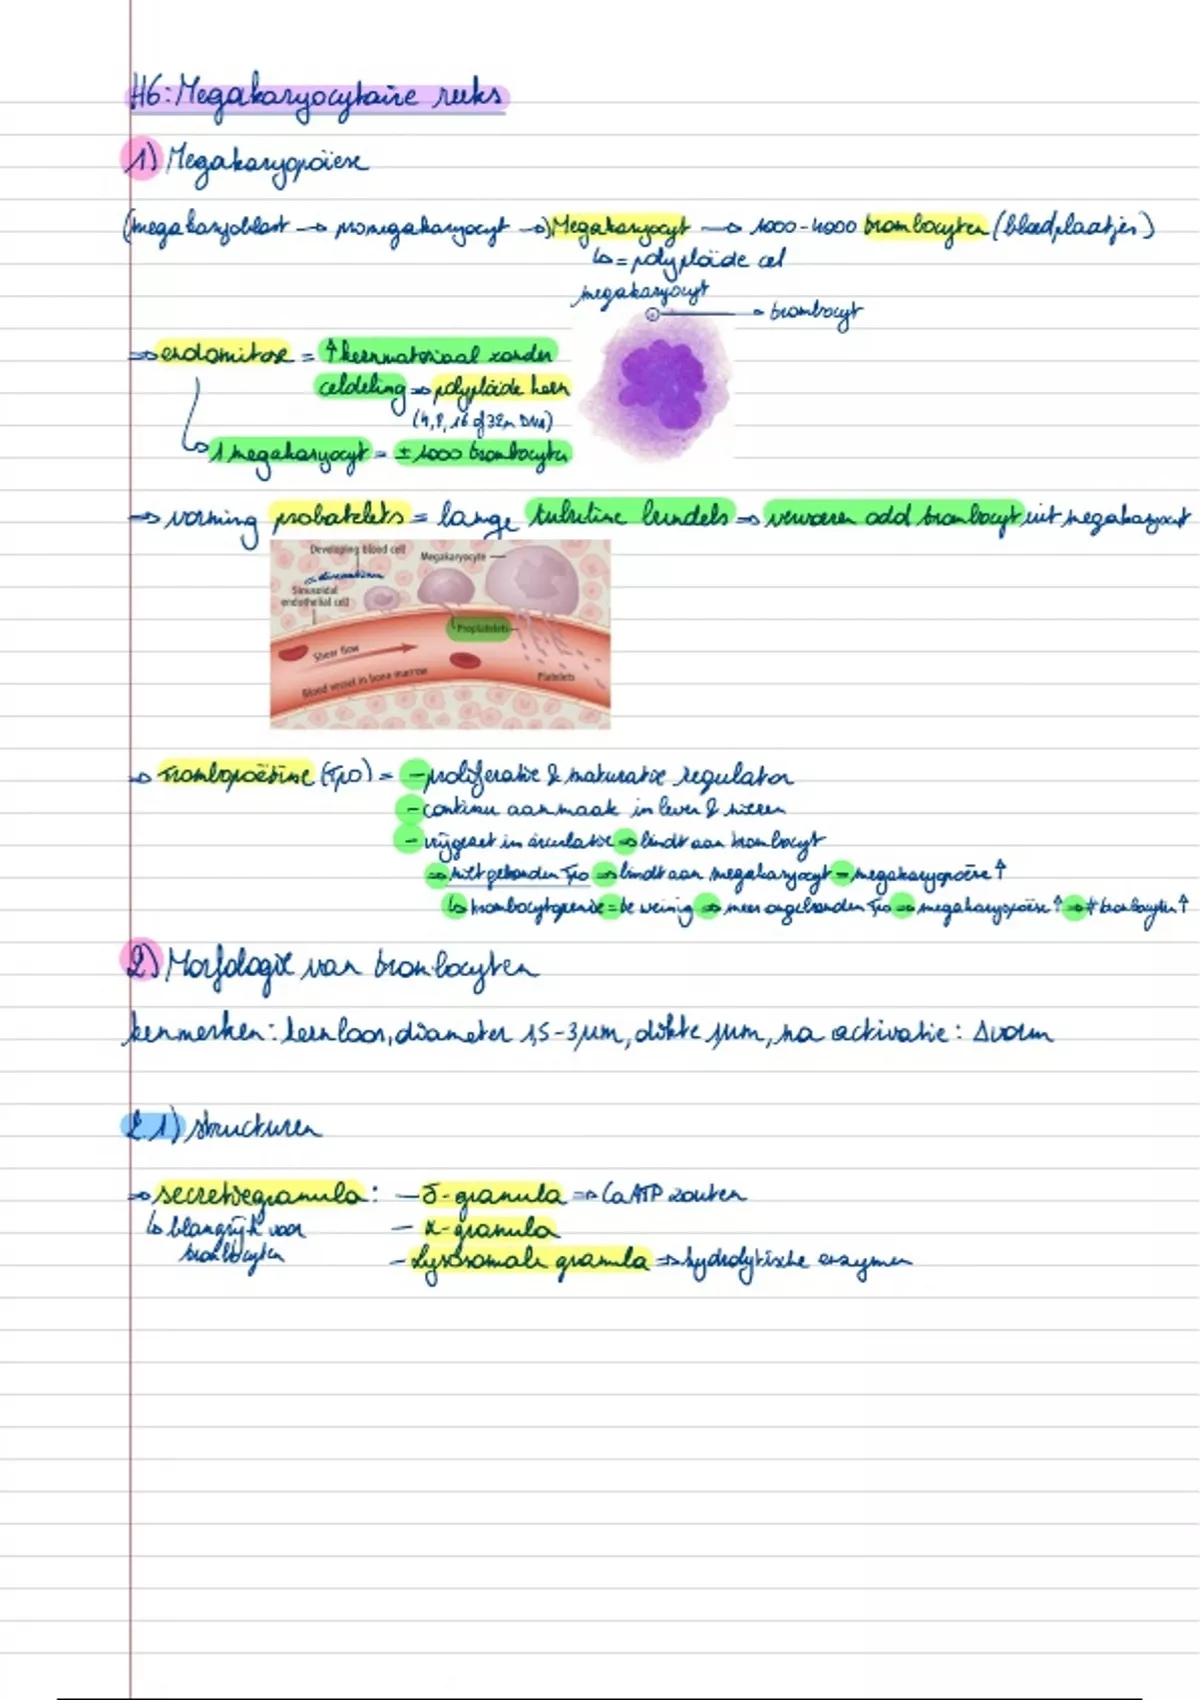 H6: Megakaryocytaire reeks
1) Megakaryopoïese
(megakaryoblast → promegakaryocyt →) Megakaryocyt → 1000-4000 trombocyten (bloedplaatjes)
↳ = polyploïde cel
megakaryocyt
trombocyt
⇒ endomitose = ↑ kernmateriaal zonder
celdeling ⇒ polyploïde kern
(4, 8, 16 of 32n DNA)
↳ 1 megakaryocyt = ± 1000 trombocyten
⇒ vorming probatelets = lange tubuline bundels ⇒ vervoeren add trombocyt uit megakaryocyt
Developing blood cell
Megakaryocyte
Sinusoidal
endothelial cell
Proplatelets
Shear flow
Platelets
Blood vessel in bone marrow
⇒ Trombopoëtine (TPO) = - proliferatie & maturatie regulator
- continu aanmaak in lever & nieren
- vrijgezet in circulatie ⇒ bindt aan trombocyt
⇒ niet gebonden TPO ⇒ bindt aan megakaryocyt ⇒ megakaryopoïese ↑
↳ trombocytopenie = te weinig ⇒ meer ongebonden TPO ⇒ megakaryopoïese ↑ ⇒ # trombocyten ↑
2) Morfologie van trombocyten
kenmerken: kernloos, diameter 1,5-3 µm, dikte 1µm, na activatie: Δ vorm
2.1) structuren
⇒ secretiegranula: - δ-granula ⇒ Ca ATP zouten
↳ blangrijk voor - α-granula
trombocyten - Lysosomale granula ⇒ hydrolytische enzymen